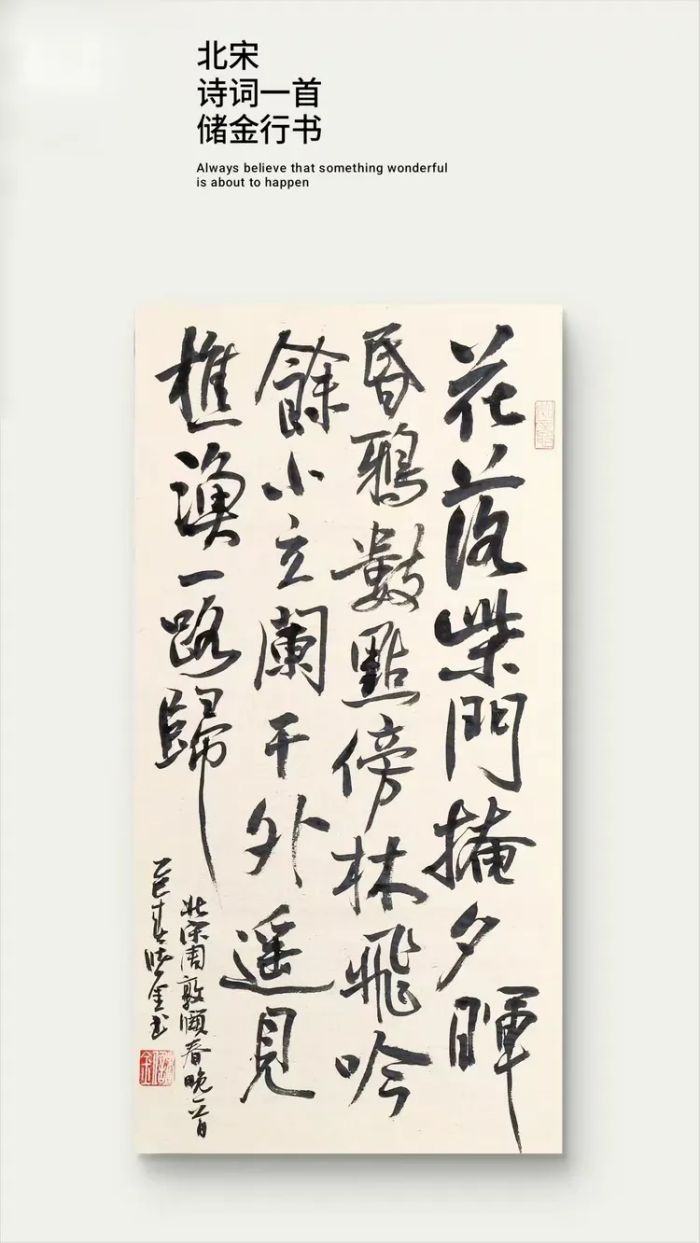 北宋
诗词一首
储金行书
Always believe that something wonderful
is about to happen
花落柴門掩夕暉
昏鴉數點傍林飛吟
餘小立闌干外遥見
樵漁一路歸
北宋周敦頤春晚一首
乙巳春储金书